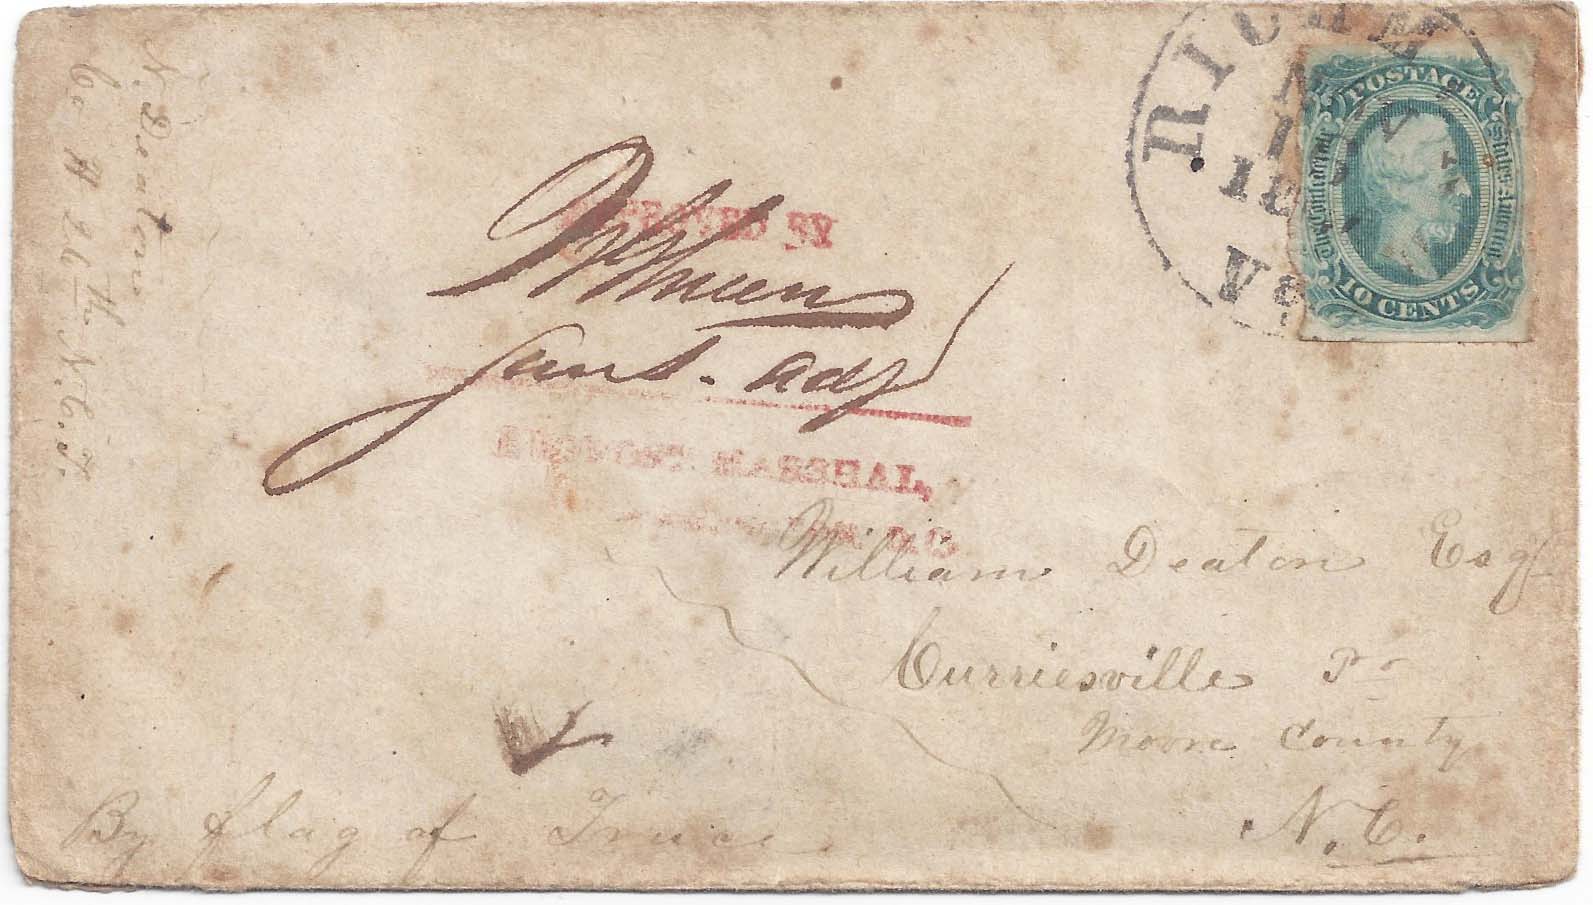 N. Deaton
Co H 26th N.C.T.
APPROVED BY
PROVOST MARSHAL,
D.C.
RICHM
VA
POSTAGE
The Confederate States of America
10 CENTS
William Deaton Esq
Curriesville Po
Moore County
N.C.
By flag of Truce